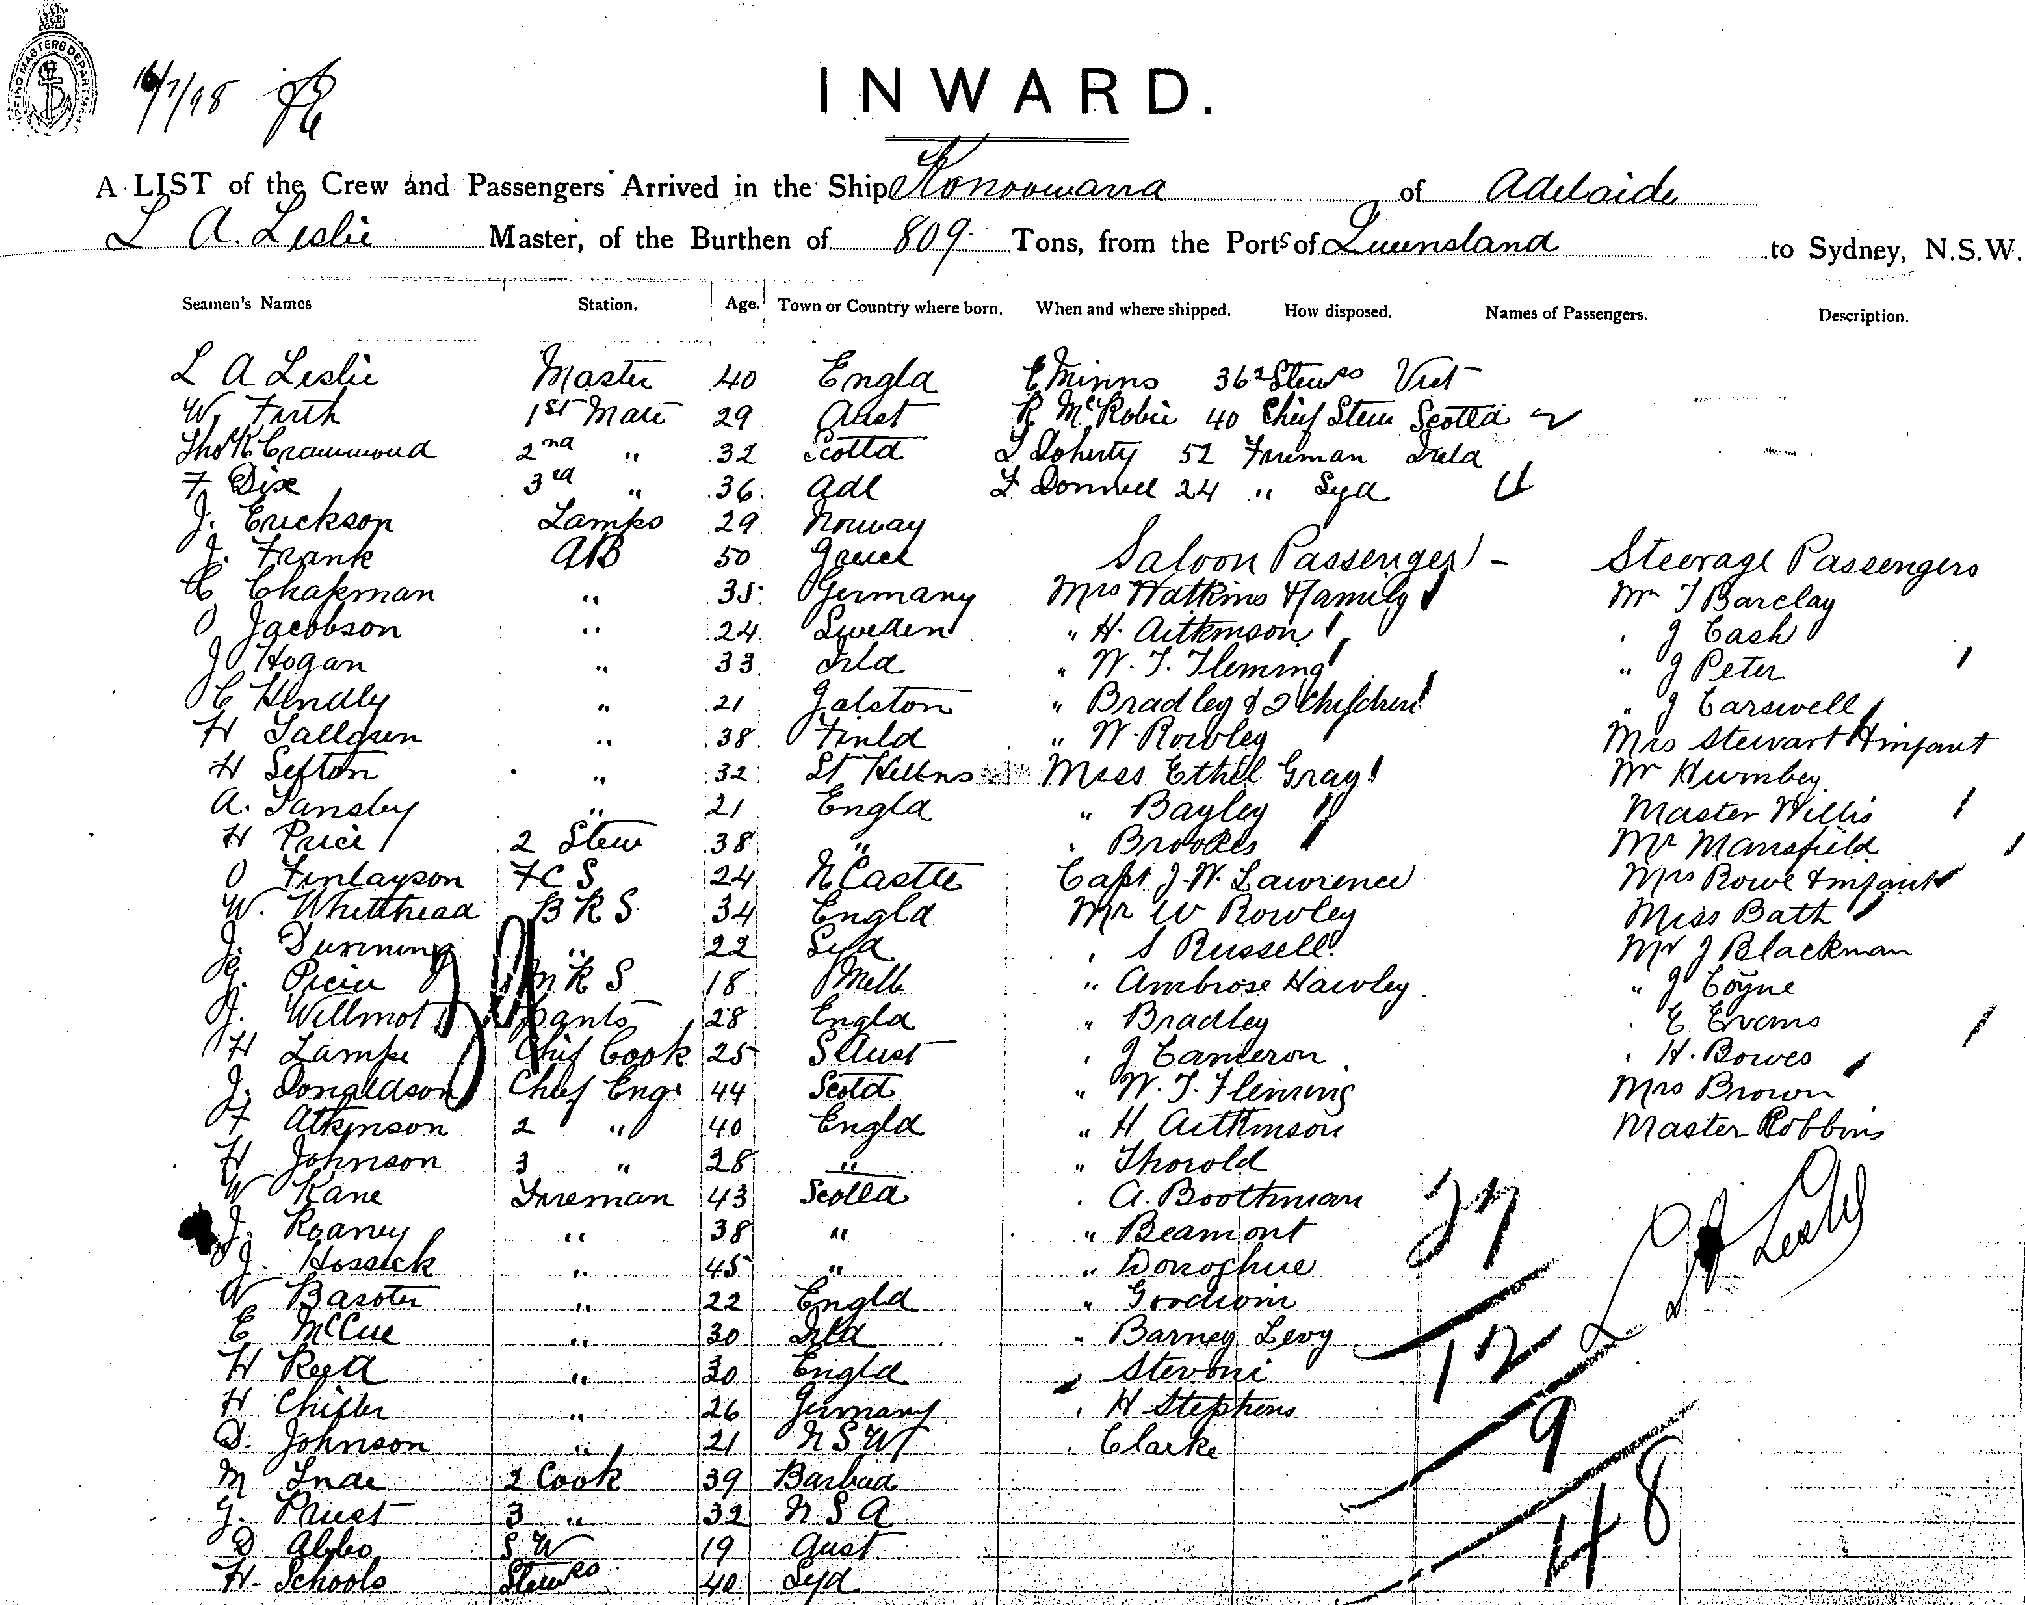 SHIPPING MASTERS DEPARTMENT
16/7/98
INWARD.
A LIST of the Crew and Passengers Arrived in the Ship Konoowarra of Adelaide
L A. Leslie Master, of the Burthen of 809 Tons, from the Ports of Queensland to Sydney, N.S.W.
Seamen's Names Station. Age. Town or Country where born. When and where shipped. How disposed. Names of Passengers. Description.
L A Leslie Master 40 Engld E Minns 36 2 Stewss Vict
W. Firth 1st Mate 29 Aust R McRobie 40 Chief Stew Scotld
Thos R Crammond 2nd " 32 Scotld Doherty 52 Fireman Ireld
F Dix 3rd " 36 Adl Donnell 24 " Syd 4
J. Erickson Lamps 29 Norway
J. Frank AB 50 Greece Saloon Passengers - Steerage Passengers
C Chapman " 35 Germany Mrs Watkins & family Mr T Barclay
O Jacobson " 24 Sweden " H. Aitkinson " J Cash
J Hogan " 33 Irld " W. T. Fleming " J Peter
C Hendly " 21 Galston " Bradley & 2 Children " J Carswell
H Tallgren " 38 Finld " W. Rowley Mrs Stewart & infant
H Sefton " 32 St Hellens Miss Ethel Gray Mr Humbey
A. Tansley " 21 Engld " Bayley Master Willis
H Price 2 Stew 38 " " Brookes Mr Mansfield
O Finlayson FCS 24 N Castle Capt. J. W. Lawrence Mrs Rowe & infant
W. Whitehead BRS 34 Engld Mr W Rowley Miss Bath
J. Dunning " 22 Syd " S Russell Mr J Blackman
J. MRS 18 Melb " Ambrose Hawley " J Coyne
J. Willmot Pants 28 Engld " Bradley " E Evans
H Lampe Chief Cook 25 S Aust " J Cameron " H. Bowes
J. Donaldson Chief Engr 44 Scotd " W. T. Fleming Mrs Brown
F Atkinson 2 " 40 Engld " H Aitkinson Master Robbins
H Johnson 3 " 28 " " Thorold
W Kane Fireman 43 Scotld " A. Boothman 27
J. Roaney " 38 " " Beamont L A Leslie
J. Hossick " 45 " " Donoghue
W Baxter " 22 Engld " Goodwin
E McCue " 30 Irld " Barney Levy 12
H Reed " 30 Engld " Stevoni
H Chifler " 26 Germany " H Stephens 9
D. Johnson " 21 NSW " Clarke
M 2 Cook 39 Barbud 48
G. Priest 3 " 32 N S A
D Abbo S W 19 Aust
H. Schools Stewss 40 Syd